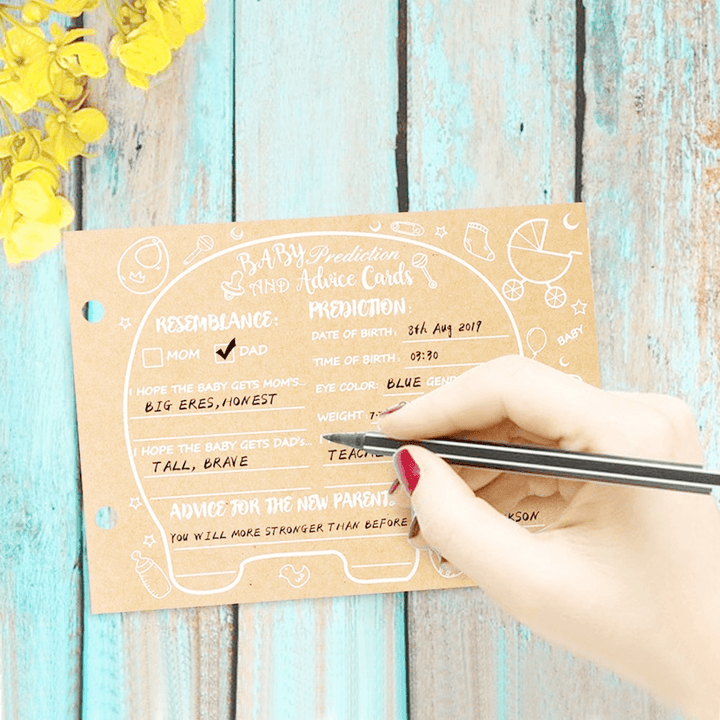 BABY Prediction
AND Advice Cards
RESEMBLANCE:
MOM DAD
I HOPE THE BABY GETS MOM'S...
BIG ERES, HONEST
I HOPE THE BABY GETS DAD's...
TALL, BRAVE
PREDICTION:
DATE OF BIRTH: 8th Aug 2019
TIME OF BIRTH: 03:30
EYE COLOR: BLUE
WEIGHT:
ADVICE FOR THE NEW
YOU WILL MORE STRONGER THAN BEFORE
BABY